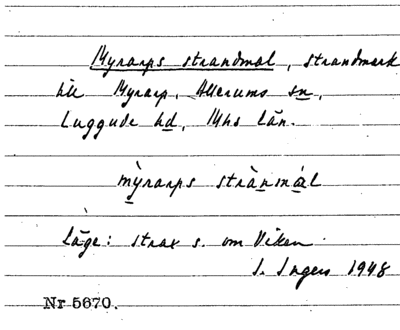 Myrarps strandmal, strandmark
till Myrarp, Allerums sn,
Luggude hd, Mhs län.
mỳrarps strànmál
Läge: strax s. om Viken.
I. Ingers 1948
Nr 5670.